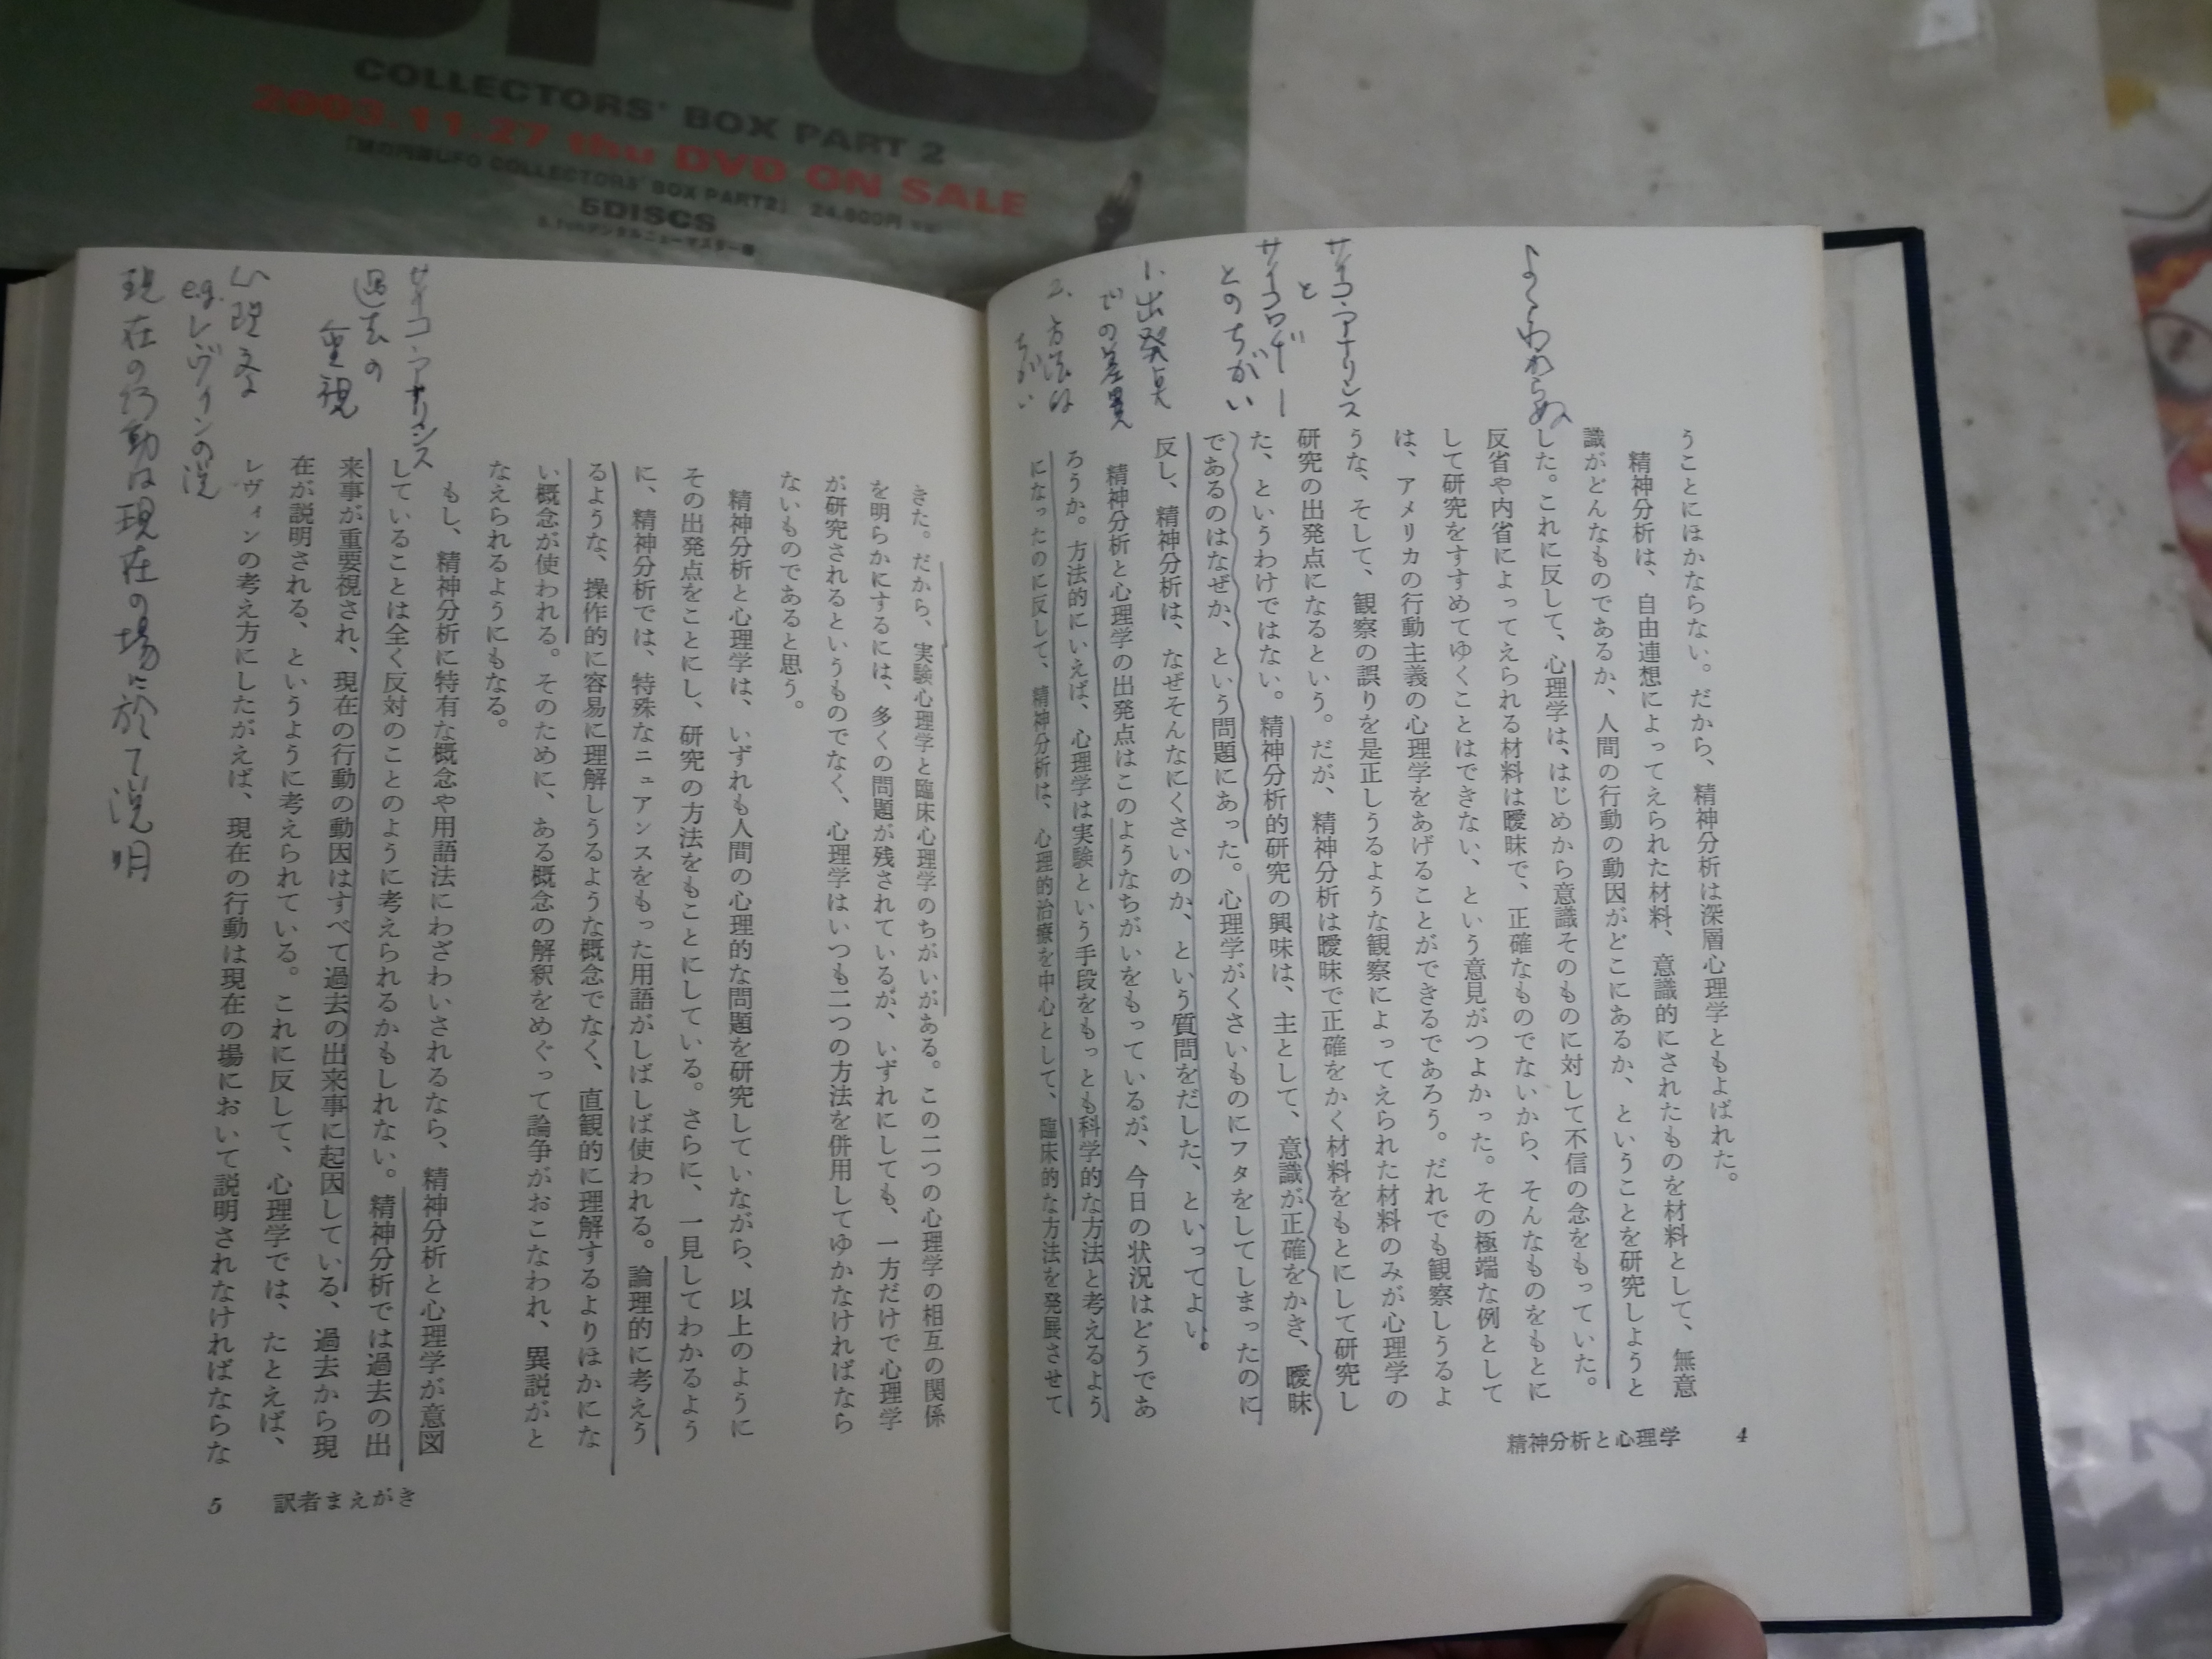 COLLECTORS' BOX PART 2
2003.11.27 thu DVD ON SALE
『謎の円盤UFO COLLECTORS' BOX PART2』 24,800円
5DISCS
5.1chデジタルニューマスター版
よくわからぬ
サイコ・アナリシス
と
サイコロヂー
とのちがい
1.出発点
での差異
2.方法の
ちがい
うことにほかならない。だから、精神分析は深層心理学ともよばれた。
精神分析は、自由連想によってえられた材料、意識的にされたものを材料として、無意
識がどんなものであるか、人間の行動の動因がどこにあるか、ということを研究しようと
した。これに反して、心理学は、はじめから意識そのものに対して不信の念をもっていた。
反省や内省によってえられる材料は曖昧で、正確なものでないから、そんなものをもとに
して研究をすすめてゆくことはできない、という意見がつよかった。その極端な例として
は、アメリカの行動主義の心理学をあげることができるであろう。だれでも観察しうるよ
うな、そして、観察の誤りを是正しうるような観察によってえられた材料のみが心理学の
研究の出発点になるという。だが、精神分析は曖昧で正確をかく材料をもとにして研究し
た、というわけではない。精神分析的研究の興味は、主として、意識が正確をかき、曖昧
であるのはなぜか、という問題にあった。心理学がくさいものにフタをしてしまったのに
反し、精神分析は、なぜそんなにくさいのか、という質問をだした、といってよい。
精神分析と心理学の出発点はこのようなちがいをもっているが、今日の状況はどうであ
ろうか。方法的にいえば、心理学は実験という手段をもっとも科学的な方法と考えるよう
になったのに反して、精神分析は、心理的治療を中心として、臨床的な方法を発展させて
精神分析と心理学
4
サイコ・アナリシス
過去の
重視
心理学
e.g.レヴィンの説
現在の行動は現在の場に於て説明
きた。だから、実験心理学と臨床心理学のちがいがある。この二つの心理学の相互の関係
を明らかにするには、多くの問題が残されているが、いずれにしても、一方だけで心理学
が研究されるというものでなく、心理学はいつも二つの方法を併用してゆかなければなら
ないものであると思う。
精神分析と心理学は、いずれも人間の心理的な問題を研究していながら、以上のように
その出発点をことにし、研究の方法をもことにしている。さらに、一見してわかるよう
に、精神分析では、特殊なニュアンスをもった用語がしばしば使われる。論理的に考えう
るような、操作的に容易に理解しうるような概念でなく、直観的に理解するよりほかにな
い概念が使われる。そのために、ある概念の解釈をめぐって論争がおこなわれ、異説がと
なえられるようにもなる。
もし、精神分析に特有な概念や用語法にわざわいされるなら、精神分析と心理学が意図
していることは全く反対のことのように考えられるかもしれない。精神分析では過去の出
来事が重要視され、現在の行動の動因はすべて過去の出来事に起因している、過去から現
在が説明される、というように考えられている。これに反して、心理学では、たとえば、
レヴィンの考え方にしたがえば、現在の行動は現在の場において説明されなければならな
訳者まえがき
5